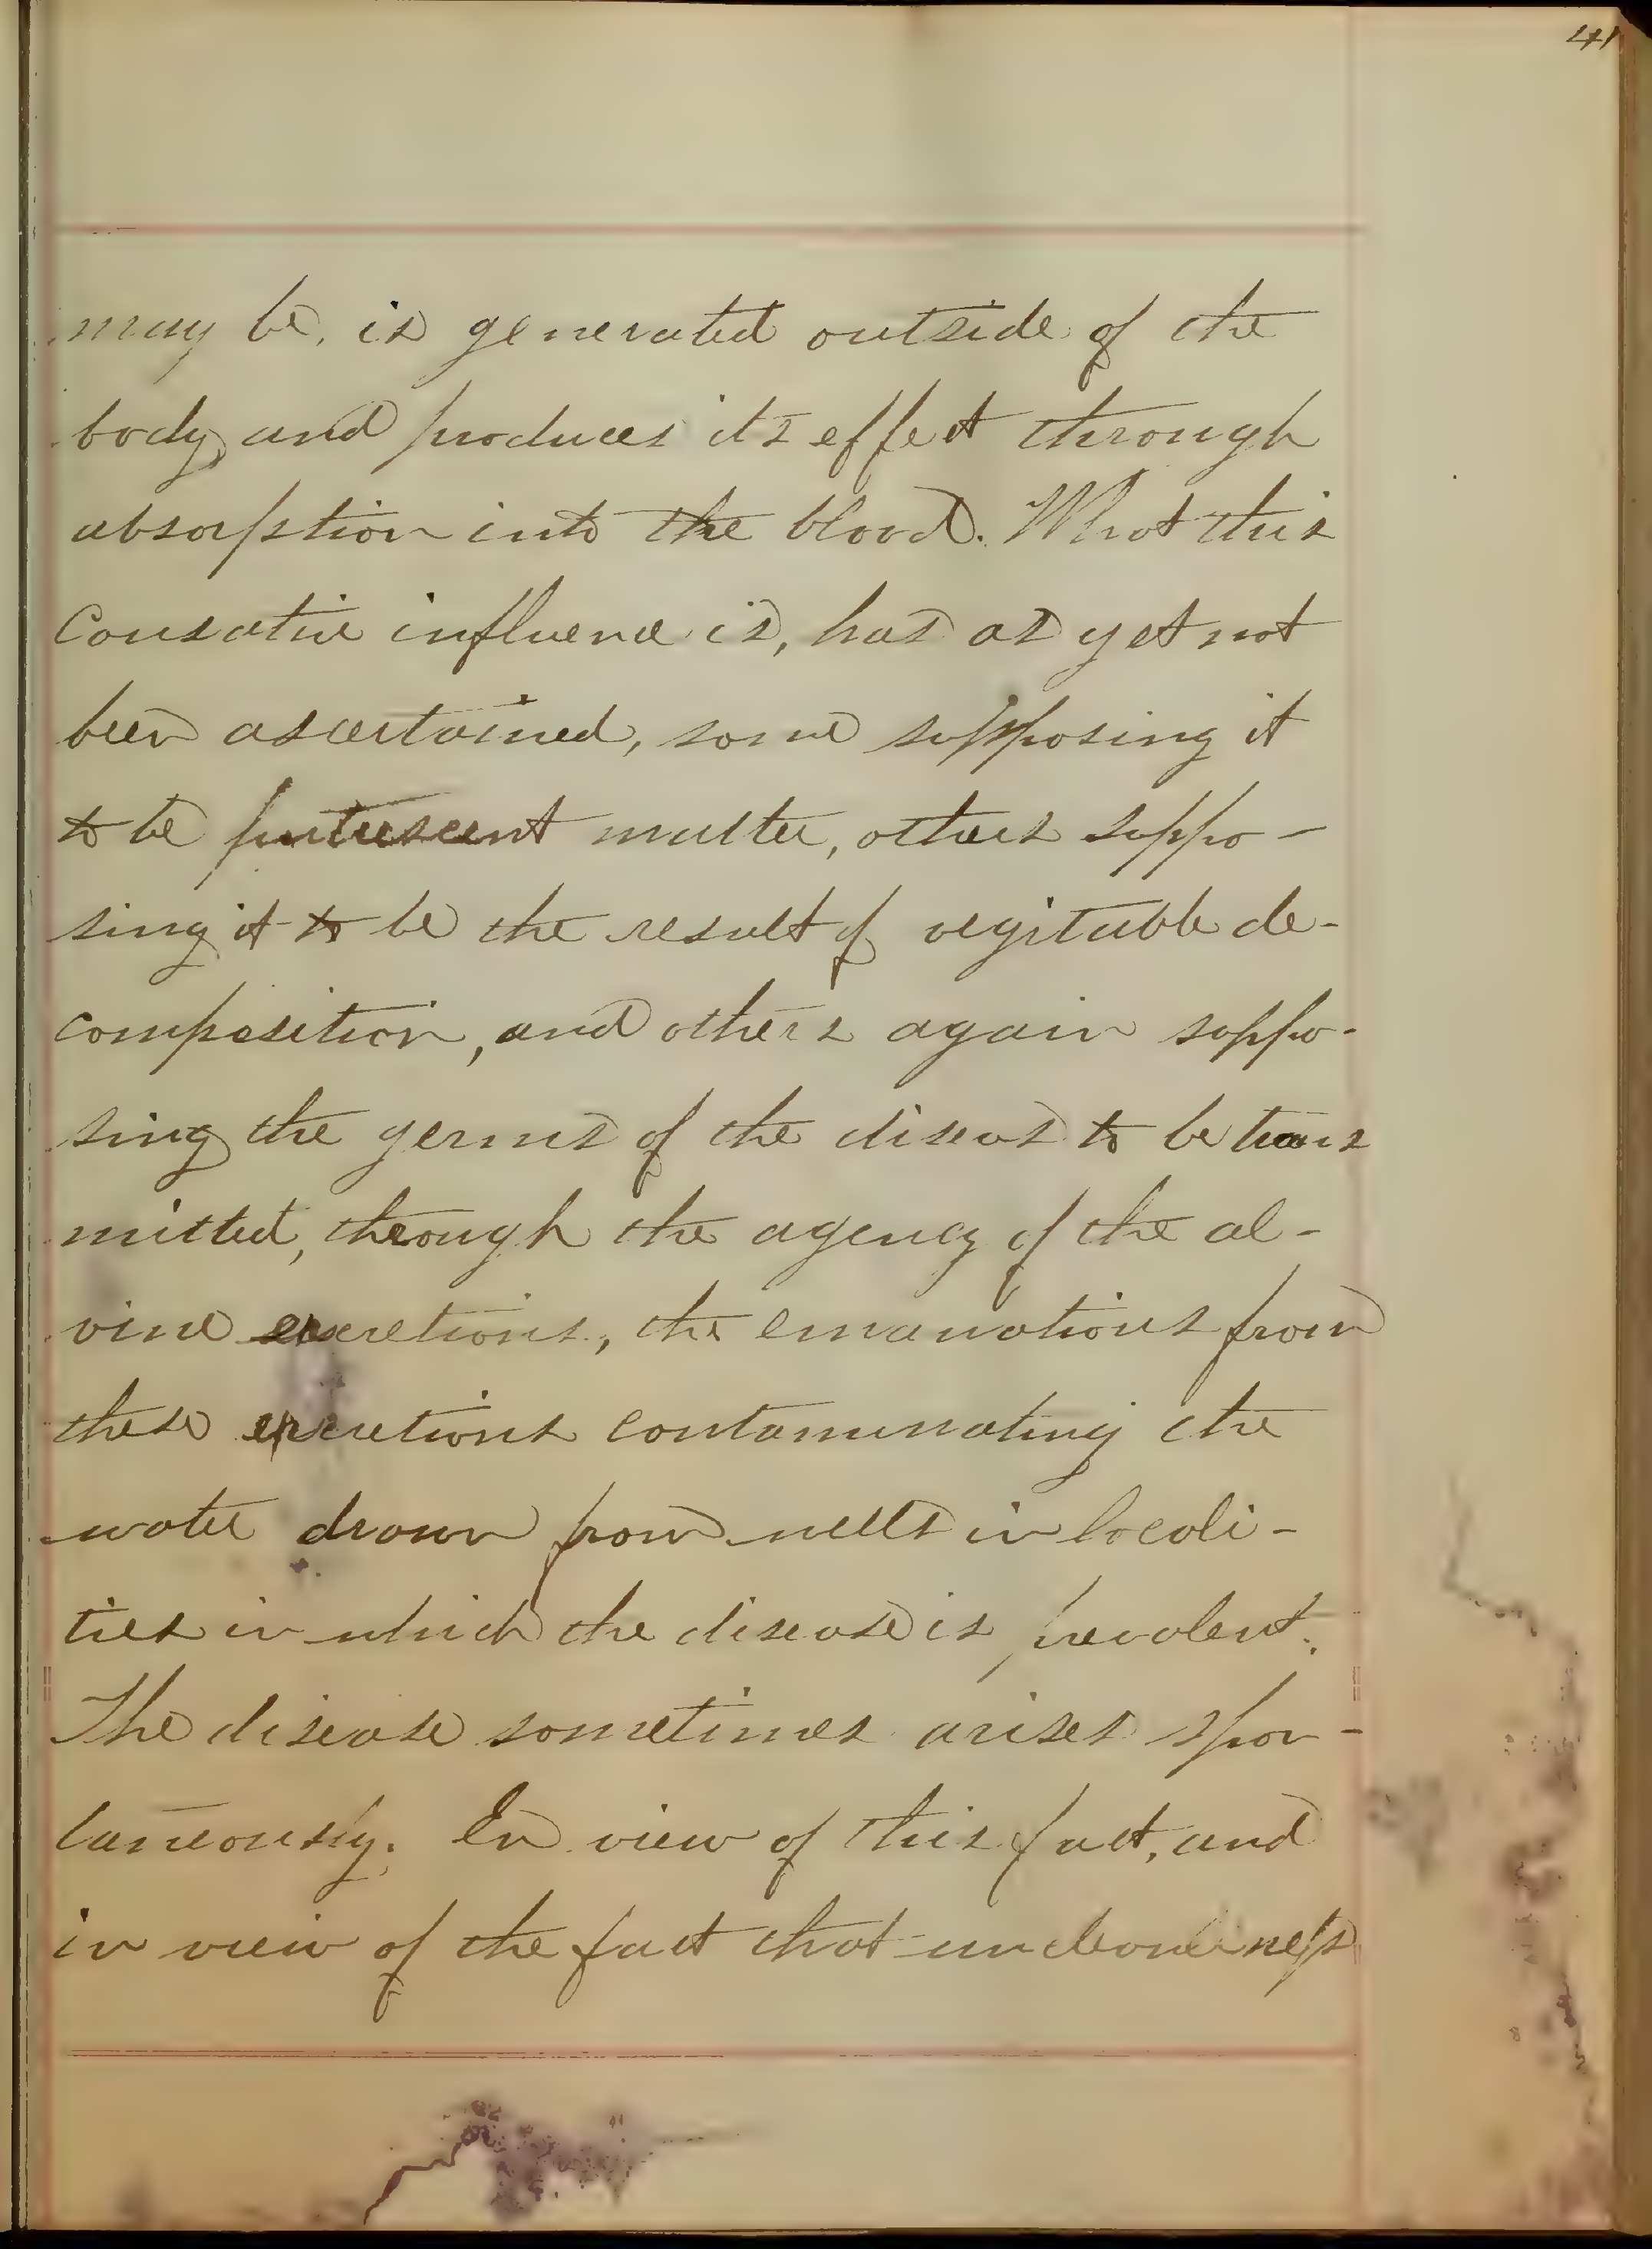 41
may be, is generated outside of the
body, and produces its effect through
absorption into the blood. What this
Causative influence is, has as yet not
been ascertained, some supposing it
to be putrescent matter, others suppo-
sing it to be the result of vegitable de-
composition, and others again suppo-
sing the germs of the diseas to be trans
mitted, through the agency of the al-
vine excretions, the emanations from
these excretions contaminating the
water drawn from wells in locali-
ties in which the disease is prevalent.
The disease sometimes arises spon-
taneously. In view of this fact, and
in view of the fact that uncleanliness